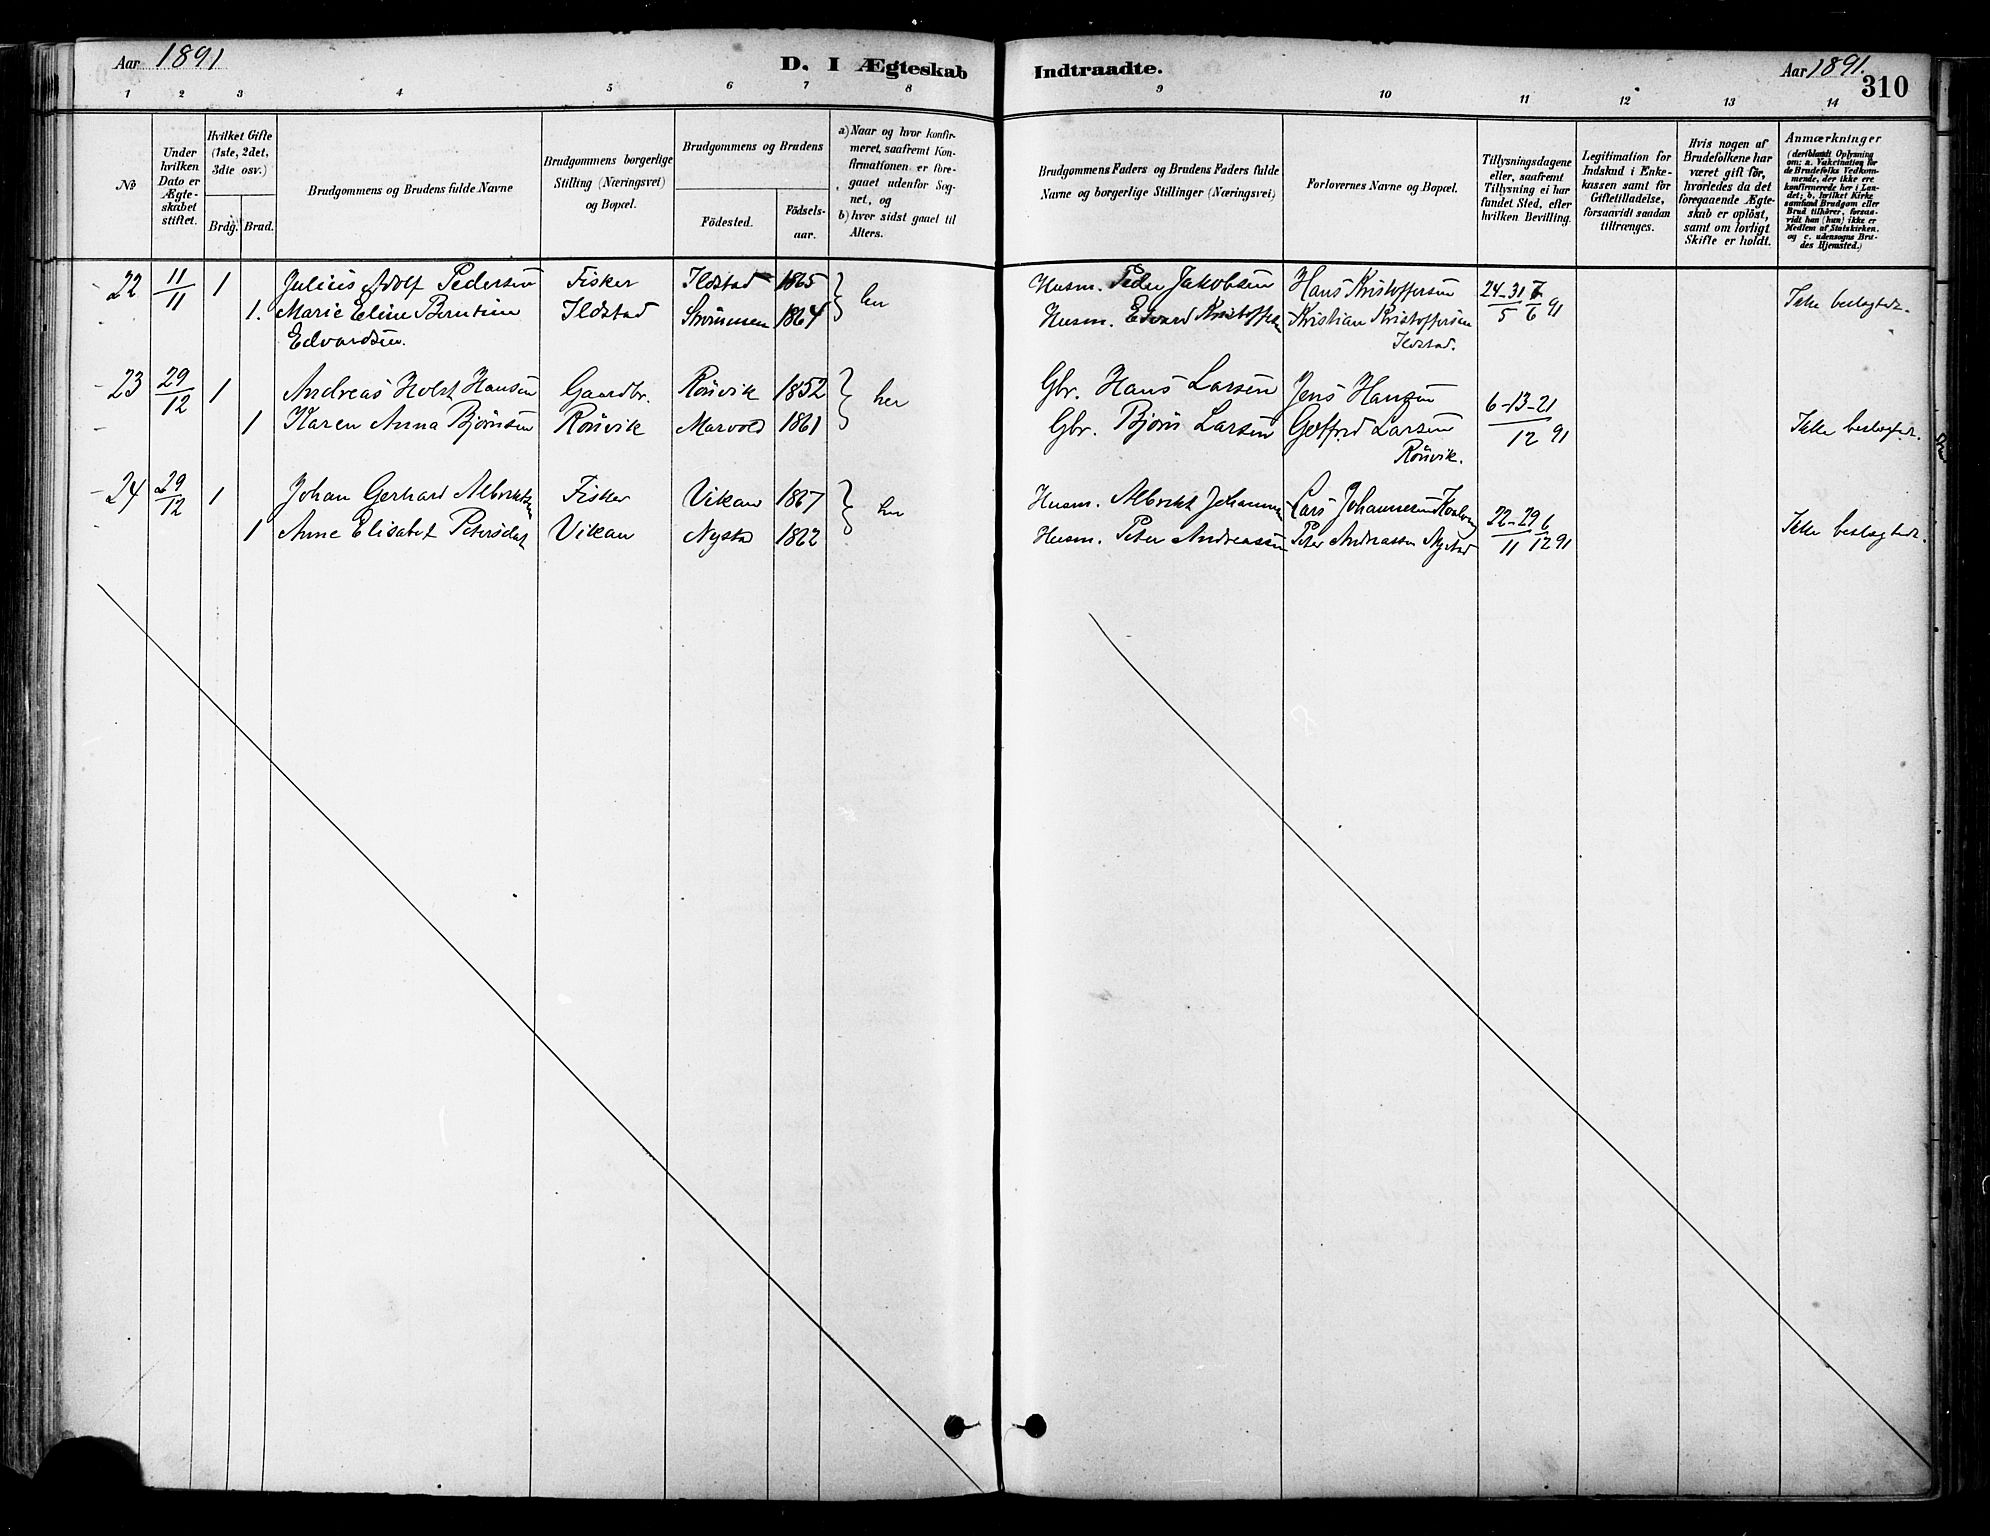 Aar 1891
D. I Ægteskab
Indtraadte.
Aar 1891.
310
1 2 3 4 5 6 7 8 9 10 11 12 13 14
No
Under hvilken Dato er Ægteskabet stiftet.
Hvilket Gifte (1ste, 2det, 3die osv.)
Brdg. Brud.
Brudgommens og Brudens fulde Navne
Brudgommens borgerlige Stilling (Næringsvei) og Bopæl.
Brudgommens og Brudens
Födested.
Födsels-aar.
a) Naar og hvor konfir-
meret, saafremt Kon-
firmationen er fore-
gaaet udenfor Sog-
net, og
b) hvor sidst gaaet til
Alters.
Brudgommens Faders og Brudens Faders fulde
Navne og borgerlige Stillinger (Næringsvei)
Forlovernes Navne og Bopæl.
Tillysningsdagene
eller, saafremt
Tillysning ei har
fundet Sted, efter
hvilken Bevilling.
Legitimation for
Indskud i Enke-
kassen samt for
Giftetilladelse,
forsaavidt saadan
tiltrænges.
Hvis nogen af
Brudefolkene har
været gift för,
hvorledes da det
foregaaende Ægte-
skab er oplöst,
samt om lovligt
Skifte er holdt.
Anmærkninger
(deriblandt Oplysning
om: a. Vakcination for
de Brudefolks Vedkom-
mende, der ikke ere
konfirmerede her i Lan-
det; b. hvilket Kirke
samfund Brudgom eller
Brud tilhörer, forsaa-
vidt han (hun) ikke er
Medlem af Statskirken.
og c. udensogns Bru-
des Hjemsted.)
22 11/11 1 Julius Adolf Pedersen Fisker Ildstad 1865 her Husm. Peder Jakobsen Hans Kristoffersen 24-31/5 7/6 91 Ikke beslægtede.
1. Marie Eline Berntine Ildstad Strømmen 1864 Husm. Edvard Kristoffersen Kristian Kristoffersen
Edvardsen. Ildstad.
23 29/12 1 Andreas Holst Hansen Gaardbr. Rönvik 1852 her Gbr. Hans Larsen Jens Hansen 6-13-21/12 91
1 Karen Anna Bjørnsen Rönvik Marvold 1861 Gbr. Bjørn Larsen Gotfred Larsen Ikke beslægtede.
Rönvik.
24 29/12 1 Johan Gerhard Albriktsen Fisker Vikan 1867 her Husm. Albrikt Johannesen Lars Johannesen 22-29/11 6/12 91
1 Anne Elisabet Petersdat Vikan Nystad 1862 Husm. Peter Andreassen Peter Andreassen Nystad Ikke beslægtede.